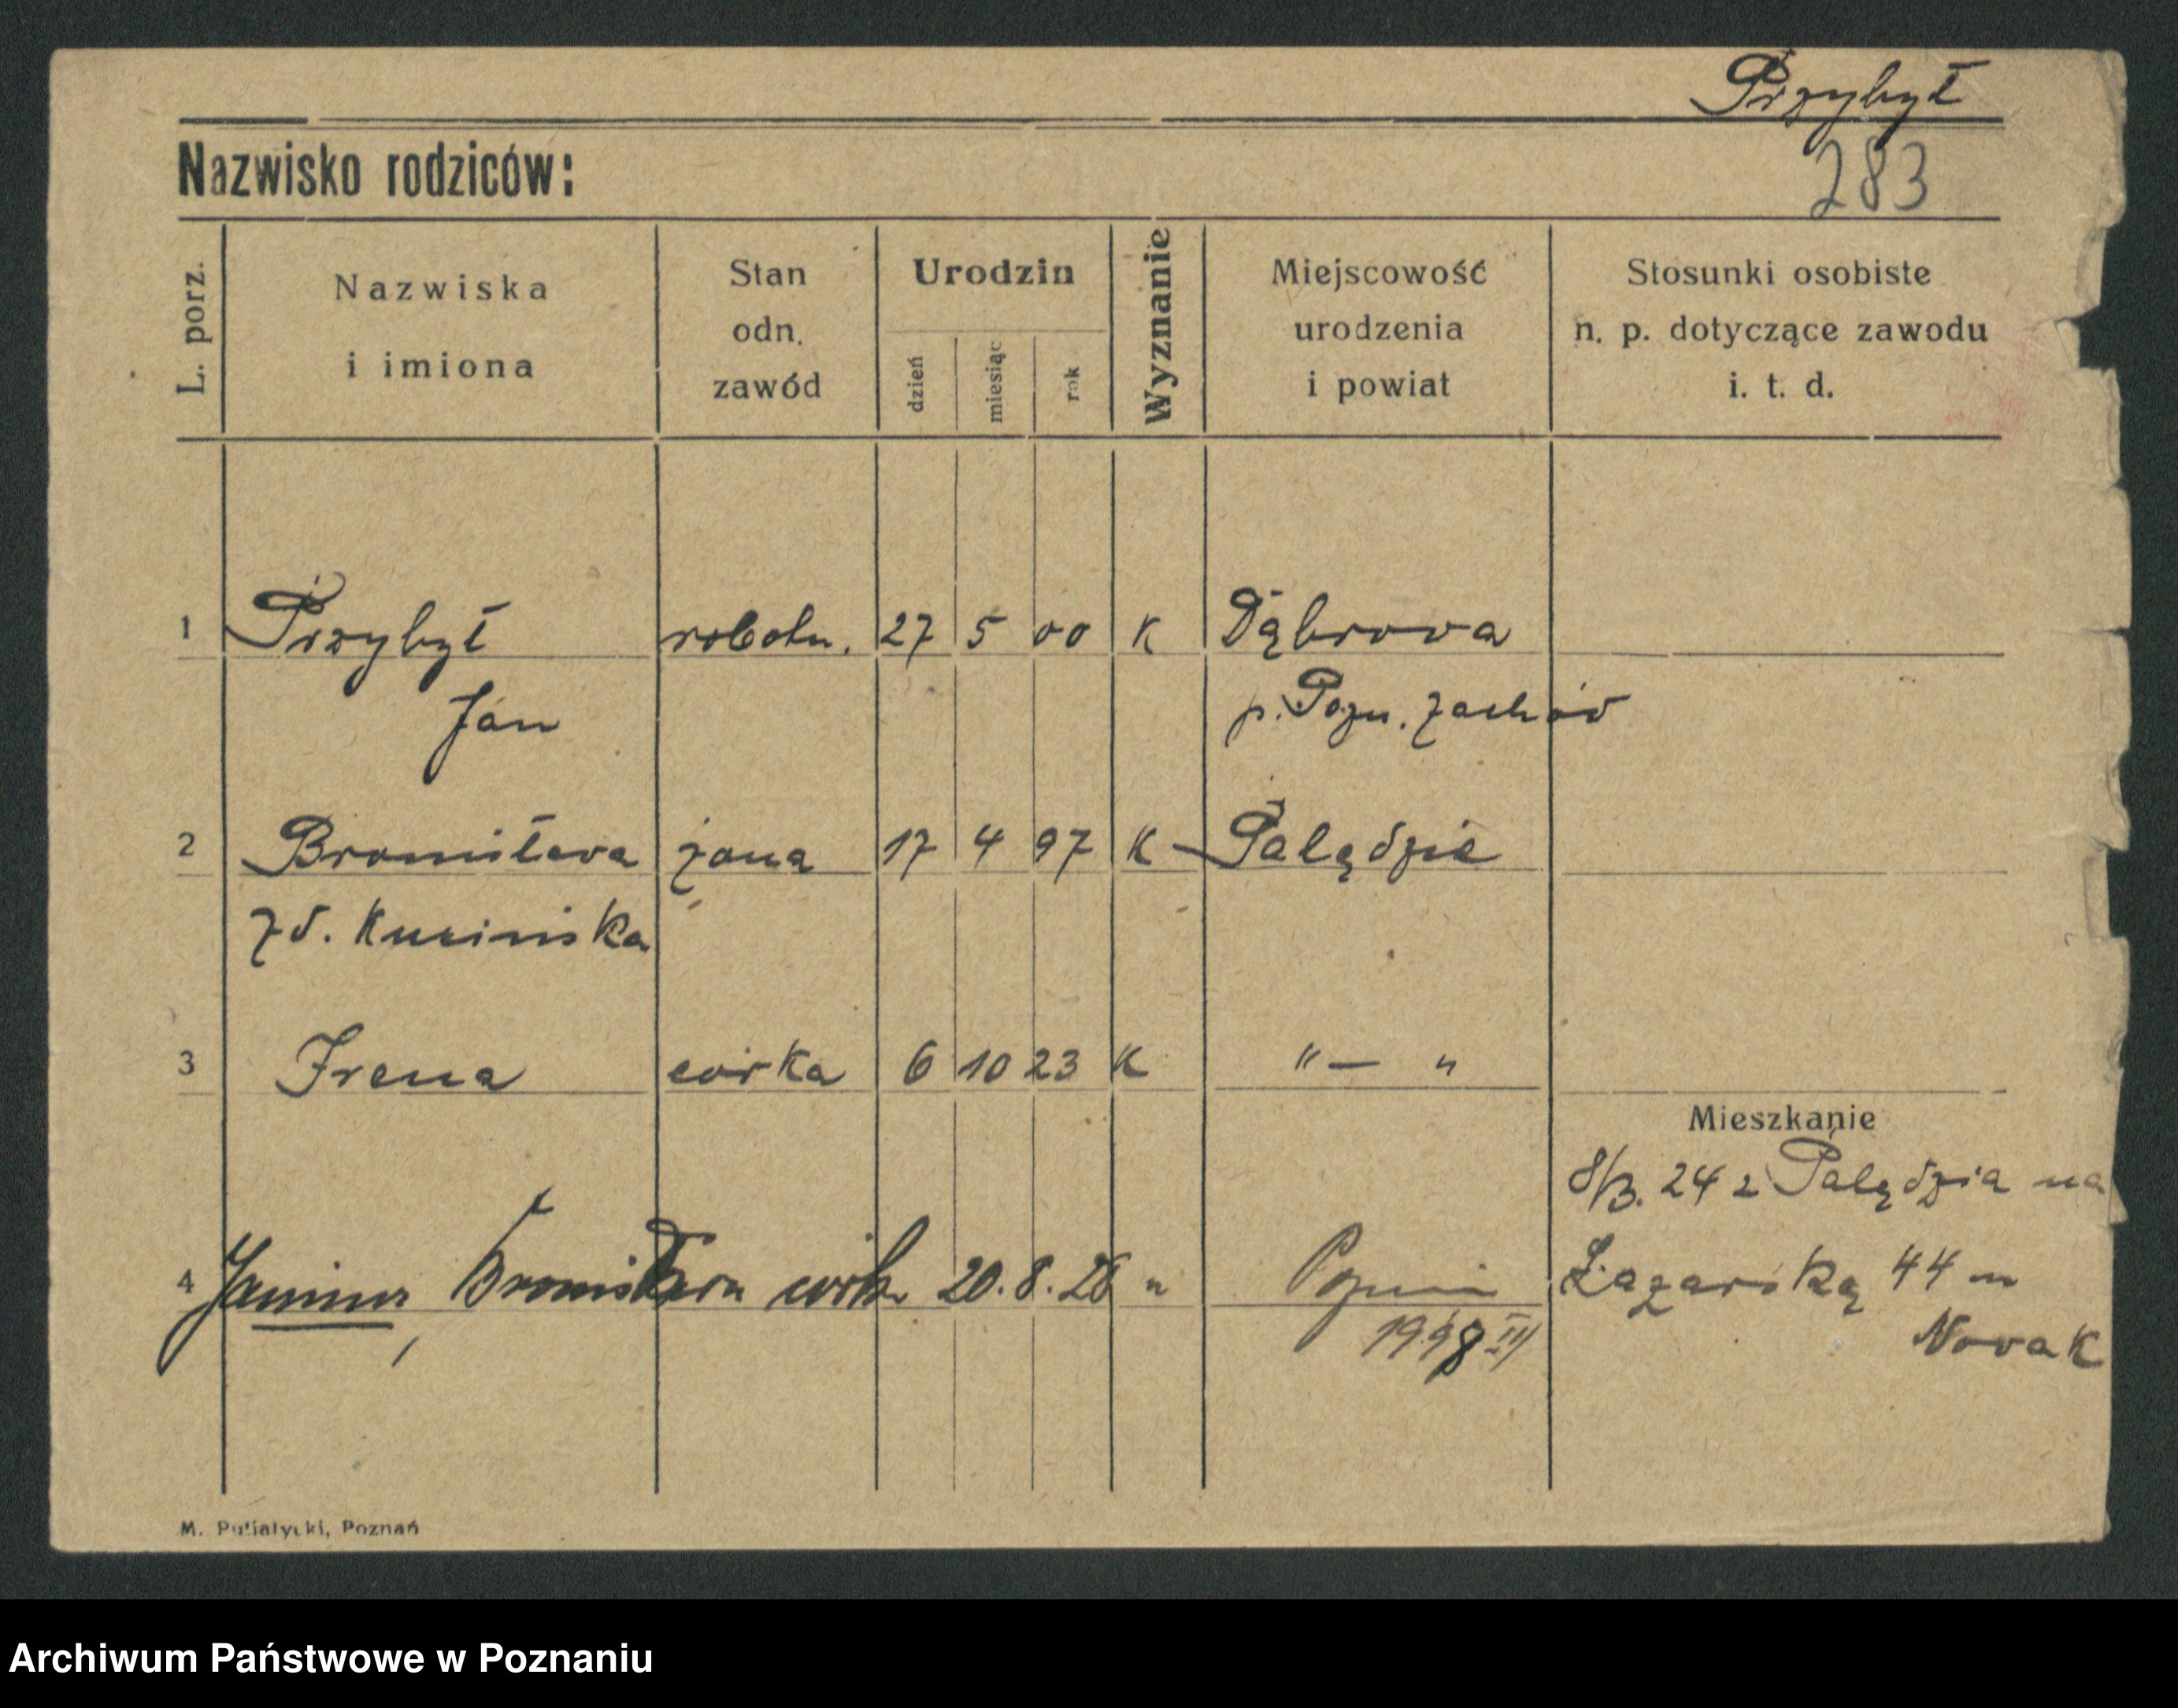 Przybył
Nazwisko rodziców:
283
L. porz.
Nazwiska
i imiona
Stan
odn.
zawód
Urodzin
dzień
miesiąc
rok
Wyznanie
Miejscowość
urodzenia
i powiat
Stosunki osobiste
n. p. dotyczące zawodu
i. t. d.
1 Przybył robotn. 27 5 00 K Dąbrova
Jan p. Pozn. zachód
2 Bronisłava żona 17 4 97 K Palędzie
zd.
3 Irena córka 6 10 23 K " — "
Mieszkanie
8/3. 24 z Palędzia na
4 Janina, Bronisława córka 20. 8. 26 " Poznań Łazarską 44 m
Novak
M. Putiatycki, Poznań
Archiwum Państwowe w Poznaniu